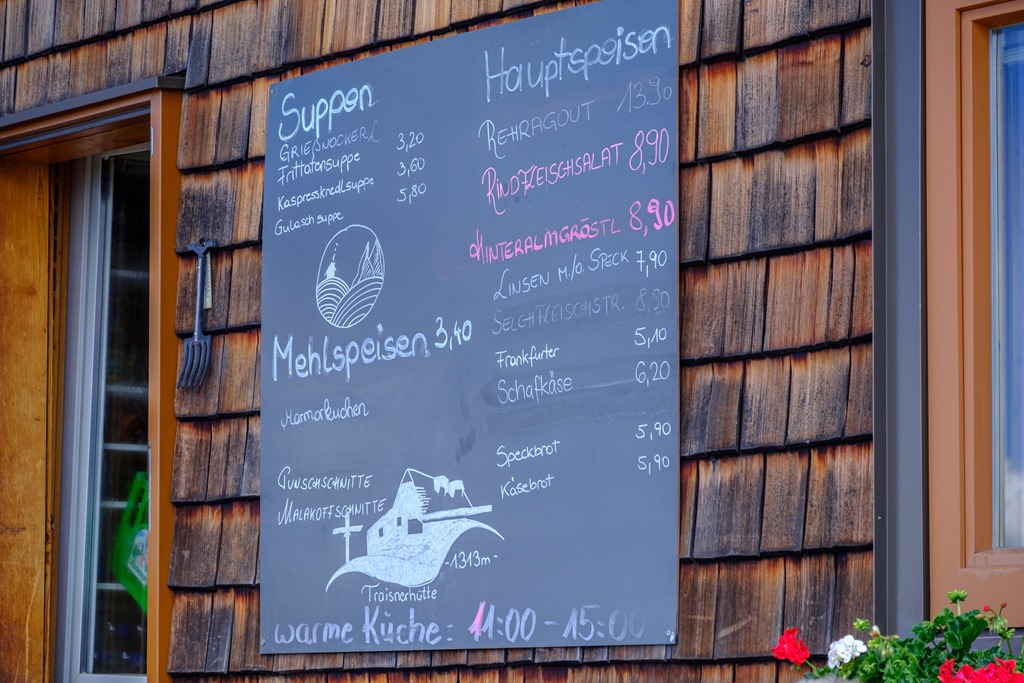 Suppen
GRIEßNOCKERL 3,20
Frittatensuppe 3,60
Kaspressknedlsuppe 5,80
Gulaschsuppe
Mehlspeisen 3,40
Marmorkuchen
PUNSCHSCHNITTE
MALAKOFFSCHNITTE
Hauptspeisen
REHRAGOUT 13.90
RINDFLEISCHSALAT 8,90
HINTERALMGRÖSTL 8,90
LINSEN M/O. SPECK 7,90
SELCHFLEISCHSTR. 8,90
Frankfurter 5,10
Schafkäse 6,20
Speckbrot 5,90
Käsebrot 5,90
-1313m-
Traisnerhütte
warme Küche: 11:00 - 15:00